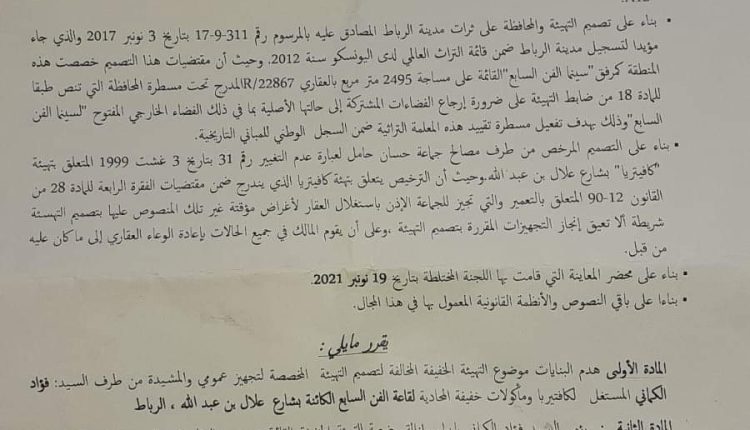 • بناء على تصميم التهيئة والمحافظة على ثرات مدينة الرباط المصادق عليه بالمرسوم رقم 311-9-17 بتاريخ 3 نونبر 2017 والذي جاء
مؤيدا لتسجيل مدينة الرباط ضمن قائمة التراث العالمي لدى اليونسكو سنة 2012. وحيث أن مقتضيات هذا التصميم خصصت هذه
المنطقة كمرفق "سينما الفن السابع" القائمة على مساحة 2495 متر مربع بالعقاري R/22867 المدرج تحت مسطرة المحافظة التي تنص طبقا
للمادة 18 من ضابط التهيئة على ضرورة إرجاع الفضاءات المشتركة إلى حالتها الأصلية بما في ذلك الفضاء الخارجي المفتوح "لسينما الفن
السابع" وذلك بهدف تفعيل مسطرة تقييد هذه المعلمة التراثية ضمن السجل الوطني للمباني التاريخية.
• بناء على التصميم المرخص من طرف مصالح جماعة حسان حامل لعبارة عدم التغيير رقم 31 بتاريخ 3 غشت 1999 المتعلق بتهيئة
"كافيتريا" بشارع علال بن عبد الله. وحيث أن الترخيص يتعلق بتهئة كافيتريا الذي يندرج ضمن مقتضيات الفقرة الرابعة للمادة 28 من
القانون 12-90 المتعلق بالتعمير والتي تجيز للجماعة الإذن باستغلال العقار لأغراض مؤقتة غير تلك المنصوص عليها بتصميم التهيئة
شريطة ألا تعيق إنجاز التجهيزات المقررة بتصميم التهيئة ، وعلى أن يقوم المالك في جميع الحالات بإعادة الوعاء العقاري إلى ما كان عليه
من قبل.
• بناء على محضر المعاينة التي قامت بها اللجنة المختلطة بتاريخ 19 نونبر 2021.
• بناءا على باقي النصوص والأنظمة القانونية المعمول بها في هذا المجال.
يقرر مايلي:
المادة الأولى هدم البنايات موضوع التهيئة الخفيفة المخالفة لتصميم التهيئة المخصصة لتجهيز عمومي والمشيدة من طرف السيد: فؤاد
الكماني المستغل لكافتيريا ومأكولات خفيفة المحاذية لقاعة الفن السابع الكائنة بشارع علال بن عبد الله ، الرباط
المادة الثانية